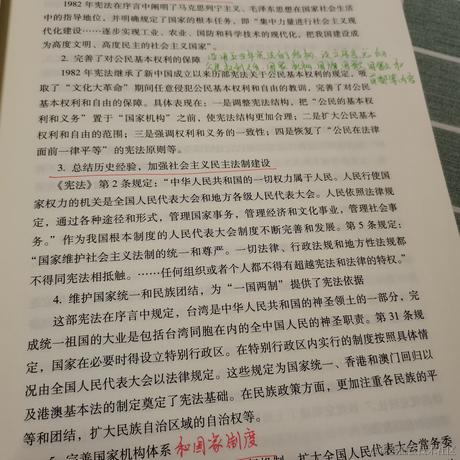 1982年宪法在序言中阐明了马克思列宁主义、毛泽东思想在国家社会生活
中的指导地位，并明确规定了国家的根本任务，即“集中力量进行社会主义现
代化建设……逐步实现工业、农业、国防和科学技术的现代化，把我国建设成
为高度文明、高度民主的社会主义国家”。
2. 完善了对公民基本权利的保障
1982年宪法继承了新中国成立以来历部宪法关于公民基本权利的规定，吸
取了“文化大革命”期间任意侵犯公民基本权利和自由的教训，完善了对公民
基本权利和自由的保障。具体表现在：一是调整宪法结构，把“公民的基本权
利和义务”置于“国家机构”之前，使宪法结构更加合理；二是扩大公民基本
权利和自由的范围；三是强调权利和义务的一致性；四是恢复了“公民在法律
面前一律平等”的宪法原则等。
3. 总结历史经验，加强社会主义民主法制建设
《宪法》第2条规定：“中华人民共和国的一切权力属于人民。人民行使国
家权力的机关是全国人民代表大会和地方各级人民代表大会。人民依照法律规
定，通过各种途径和形式，管理国家事务，管理经济和文化事业，管理社会事
务。”作为我国根本制度的人民代表大会制度不断完善和发展。第5条规定：
“国家维护社会主义法制的统一和尊严。一切法律、行政法规和地方性法规都
不得同宪法相抵触。……任何组织或者个人都不得有超越宪法和法律的特权。”
4. 维护国家统一和民族团结，为“一国两制”提供了宪法依据
这部宪法在序言中规定，台湾是中华人民共和国的神圣领土的一部分，完
成统一祖国的大业是包括台湾同胞在内的全中国人民的神圣职责。第31条规
定，国家在必要时得设立特别行政区。在特别行政区内实行的制度按照具体情
况由全国人民代表大会以法律规定。这些规定为国家统一、香港和澳门回归以
及港澳基本法的制定奠定了宪法基础。在民族政策方面，更加注重各民族的平
等和团结，扩大民族自治区域的自治权等。
5. 完善国家机构体系 和国家制度
机制，扩大全国人民代表大会常务委